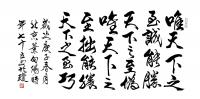 唯天下之
至誠能勝
天下之至偽
唯天下之
至拙能勝
天下之至巧
歲次庚子春月
北京
年七十五